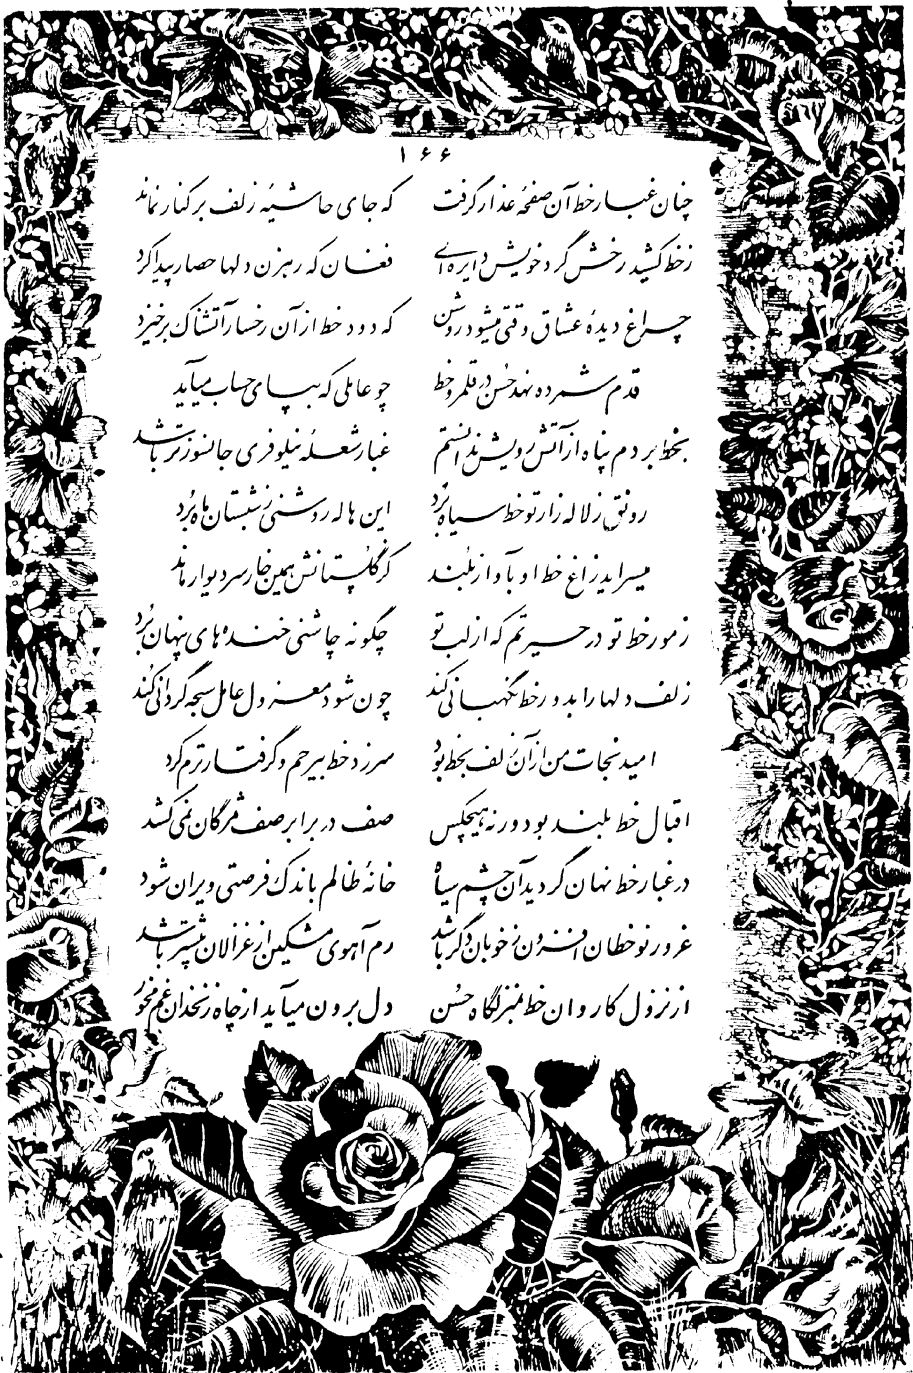 ۱۶۶
چنان غبار خط آن صفحهٔ عذار گرفت که جای حاشیهٔ زلف بر کنار نماند
ز خط کشید رخش گرد خویش دایره‌ای فغان که رهزن دلها حصار پیدا کرد
چراغ دیدهٔ عشاق وقتی میشود روشن که دود خط از آن رخسار آتشناک برخیزد
قدم شمرده نهد حسن در قلمرو خط چو عاملی که بپای حساب میآید
بخط بردم پناه از آتش رویش ندانستم غبار شعلهٔ نیلوفری جانسوزتر باشد
رونق ز لاله‌زار تو خط سیاه برد این هاله روشنی ز شبستان ماه برد
میسراید زاغ خط او بآواز بلند کز گلستانش همین خار سر دیوار ماند
ز مور خط تو در حیرتم که از لب تو چگونه چاشنی خنده‌های پنهان برد
زلف دلها را بدور خط نگهبانی کند چون شود معزول عامل سبحه گردانی کند
امید نجات من از آن زلف بخط بود سر زد خط بیرحم و گرفتارترم کرد
اقبال خط بلند بود ورنه هیچکس صف در برابر صف مژگان نمی‌کشد
در غبار خط نهان گردید آن چشم سیاه خانهٔ ظالم باندک فرصتی ویران شود
غرور نوخطان افزون ز خوبان دگر باشد رم آهوی مشکین از غزالان بیشتر باشد
از نزول کاروان خط بمنزلگاه حسن دل برون میآید از چاه زنخدان غم مخور